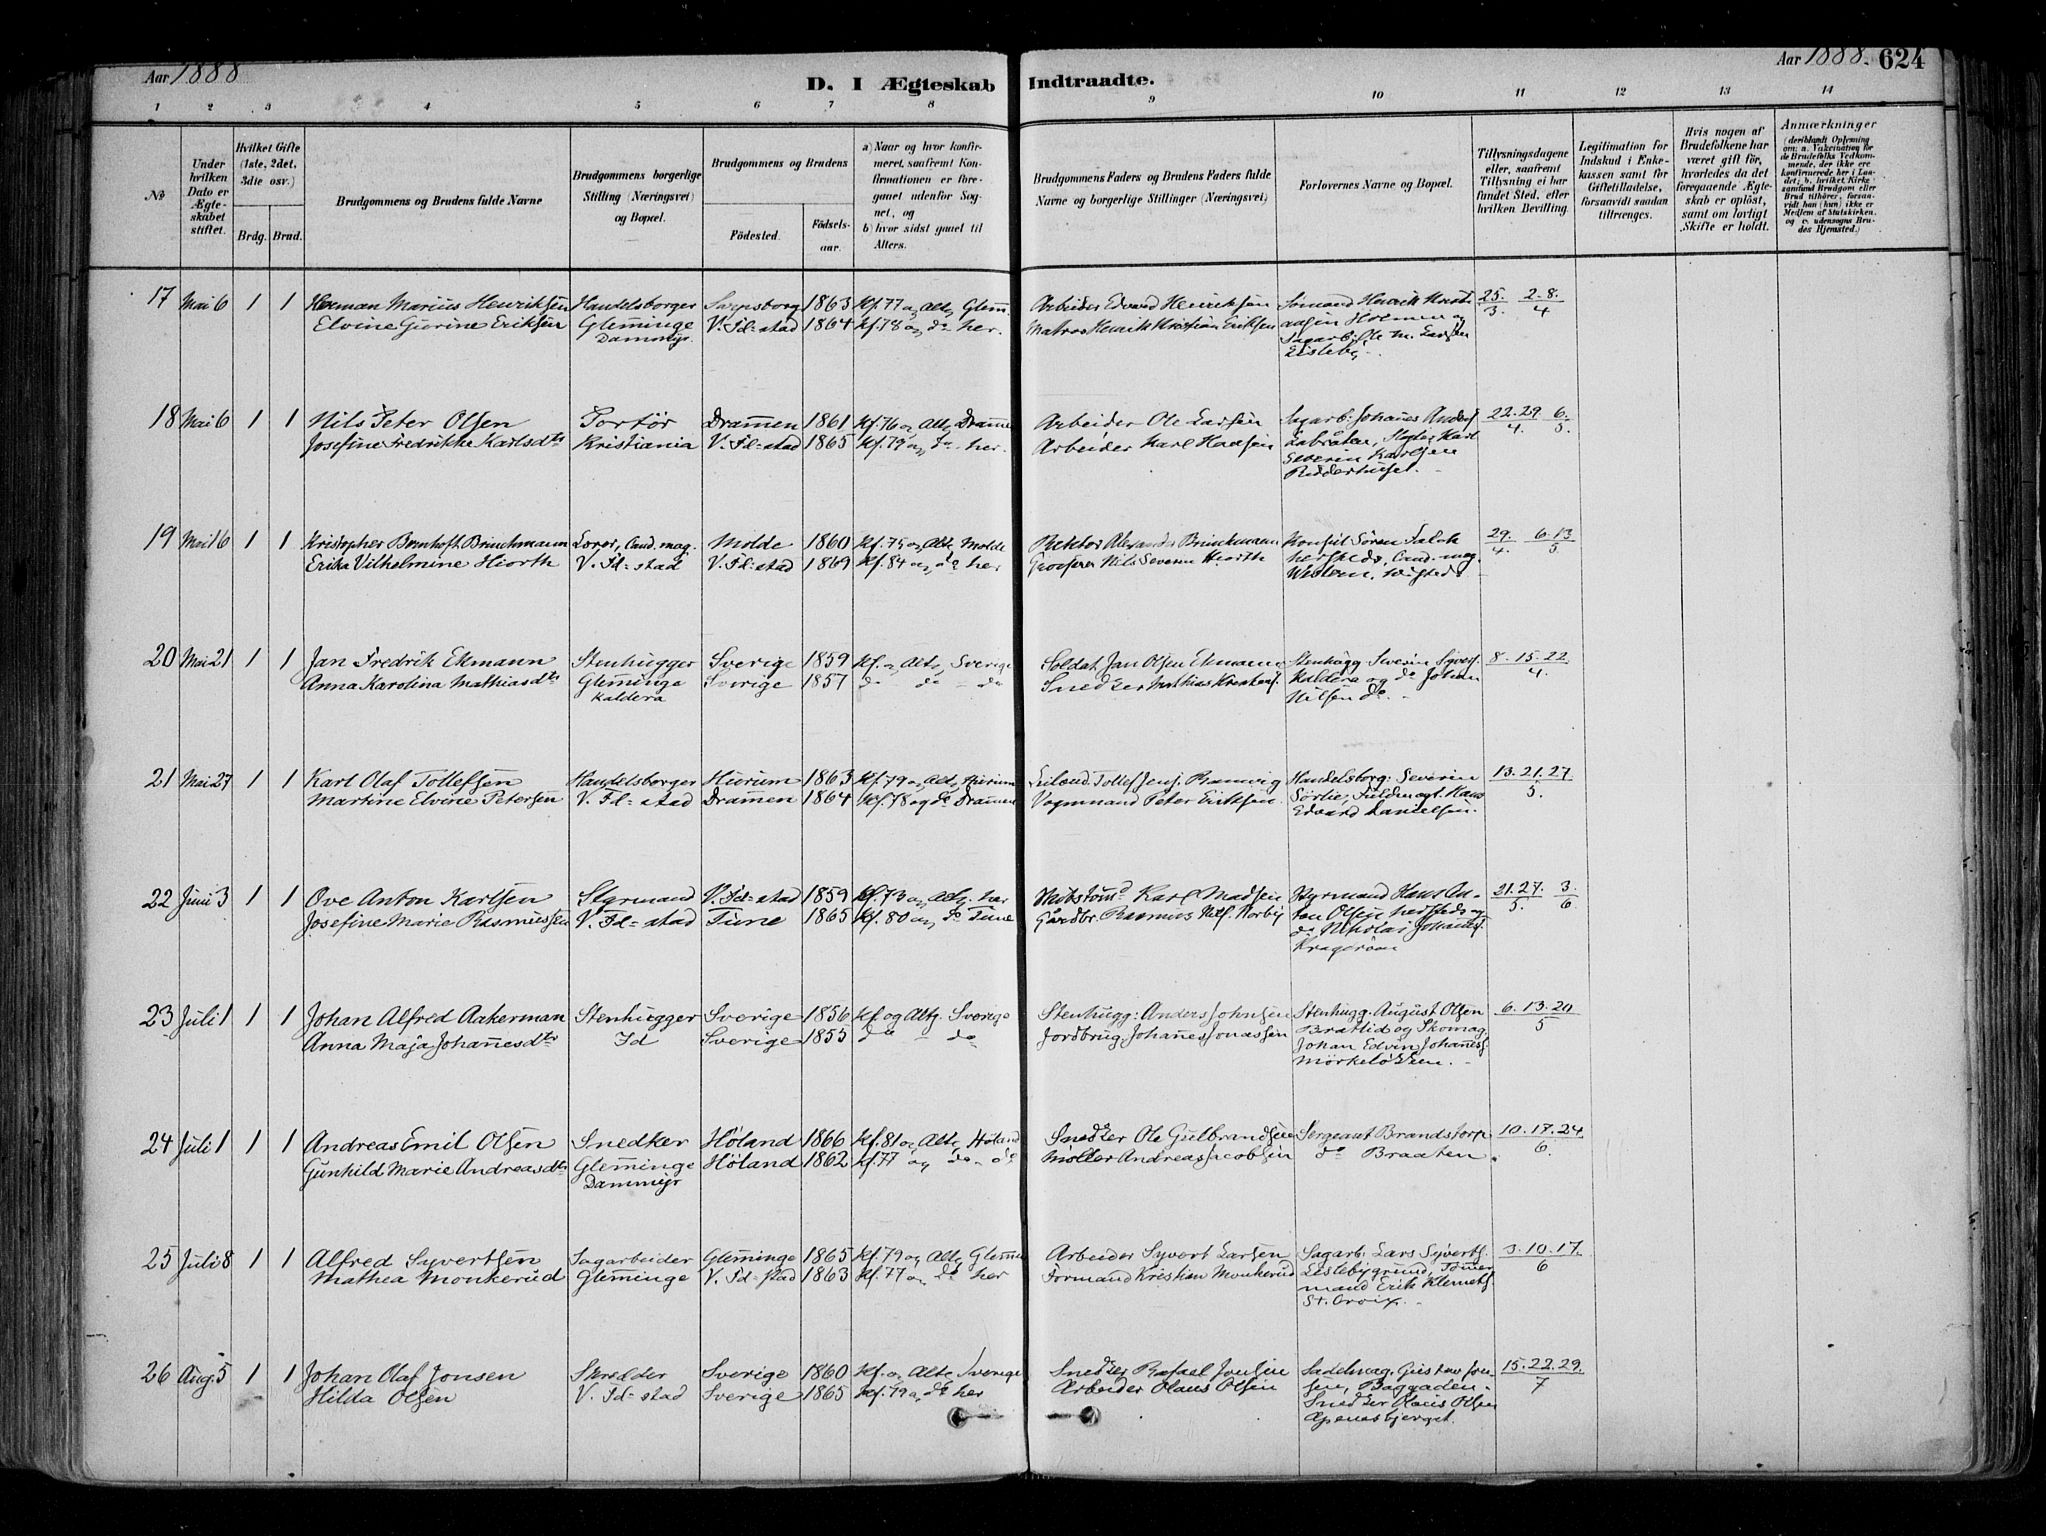 Aar 1888
D. I Ægteskab Indtraadte.
Aar 1888. 624
1 2 3 4 5 6 7 8 9 10 11 12 13 14
No
Under hvilken Dato er Ægteskabet stiftet.
Hvilket Gifte (1ste, 2det, 3die osv.)
Brdg. Brud.
Brudgommens og Brudens fulde Navne
Brudgommens borgerlige Stilling (Næringsvei) og Bopæl.
Brudgommens og Brudens
Födested.
Födsels-aar.
a) Naar og hvor konfirmeret, saafremt Konfirmationen er foregaaet udenfor Sognet, og
b) hvor sidst gaaet til Alters.
Brudgommens Faders og Brudens Faders fulde Navne og borgerlige Stillinger (Næringsvei)
Forlovernes Navne og Bopæl.
Tillysningsdagene eller, saafremt Tillysning ei har fundet Sted, efter hvilken Bevilling.
Legitimation for Indskud i Enkekassen samt for Giftetilladelse, forsaavidt saadan tiltrænges.
Hvis nogen af Brudefolkene har været gift för, hvorledes da det foregaaende Ægteskab er oplöst, samt om lovligt Skifte er holdt.
Anmærkninger
(deriblandt Oplysning om: a. Vakcination for de Brudefolks Vedkommende, der ikke ere konfirmerede her i Landet; b. hvilket Kirkesamfund Brudgom eller Brud tilhörer, forsaavidt han (hun) ikke er Medlem af Statskirken, og c. udensogns Brudes Hjemsted.)
17 Mai 6 1 1 Herman Marius Henriksen Handelsborger Sarpsborg 1863 Kf. 77 og Altg. Glem. Arbeider Edvard Henriksen Sömand Henrik 25. 2. 8.
Elvine Gurine Eriksen Glemminge V. Fd=stad 1864 Kf. 78 og do her. Matros Henrik Kristian Eriksen Holmen og 3. 4
Dammyr Sagarb. Ole M. Larsen
Lisleby.
18 Mai 6 1 1 Nils Peter Olsen Portör Drammen 1861 Kf. 76 og Altg. Dramm Arbeider Ole Larsen Sagarb. Johanes 22. 29. 6.
Josefine Fredrikke Karlsdtr Kristiania V. Fd=stad 1865 Kf. 79 og do. her. Arbeider Karl Hansen Labråten, Karl 4. 5.
Severin Karlsen
Ridderhuset.
19 Mai 16 1 1 Kristopher Bernhoft Brinchmann Lærer, Cand. mag. Molde 1860 Kf. 75 og Altg. Molde Rektor Alexander Brinchmann Konsul Sören 29. 6. 13
Erika Vilhelmine Hiorth V. Fd=stad V. Fd=stad 1869 Kf. 84 og do her Nils Severin Hiorth Cand. mag. 4. 5
20 Mai 21 1 1 Jan Fredrik Ekmann Stenhugger Sverige 1859 Kf. og Altg. Sverige Soldat Jan Olsen Ekmann Stenhugg Severin Syvers. 8. 15. 22
Anna Karolina Mathiasdtr Glemminge Sverige 1857 do do - do Snedker Mathias Kaldera og do Johan 4.
Kaldera Nilsen do.
21 Mai 27 1 1 Karl Olaf Tollefsen Handelsborger Hurum 1863 Kf. 79 og Altg. Hurum Tollef Jens. Handelsborg. Severin 13. 21. 27
Martine Elvine Petersen V. Fd=stad Drammen 1864 Kf. 78 og do Drammen Vognmand Peter Eriksen. Sörlie, Fuldmægt. Hans 5.
Edvard Danielsen.
22 Juni 3 1 1 Ove Anton Karlsen Styrmand V. Fd=stad 1859 Kf. 73 og Altg. her Karl Madsen Styrmand Hans An- 21. 27. 3.
Josefine Marie Rasmussen V. Fd=stad Tune 1865 Kf. 80 og do Tune Gårdbr. Rasmus Nils. Korby ton Olsen herstds og 5. 6
do Nikolai Johannes.
Kragerøen
23 Juli 1 1 1 Johan Alfred Aakerman Stenhugger Sverige 1856 Kf og Altg. Sverige Stenhugg. Anders Johnsen Stenhugg. August Olsen 6. 13. 20
Anna Maja Johannesdtr Id Sverige 1855 do - do Jordbrug. Johannes Jonassen Bratlid og Skomag. 5
Johan Edvin Johannes.
Mørkeløkken.
24 Juli 1 1 1 Andreas Emil Olsen Snedker Höland 1866 Kf. 81 og Altg. Höland Snedker Ole Gulbrandsen Sergeant Brandstorp 10. 17. 24
Gunhild Marie Andreasdtr Glemminge Höland 1862 Kf. 77 og do - do Møller Andreas Jacobsen do Braaten. 6.
Dammyr
25 Juli 8 1 1 Alfred Syvertsen Sagarbeider Glemminge 1865 Kf. 79 og Altg. Glemm Arbeider Syvert Larsen Sagarb. Lars Syverts. 3. 10. 17
Mathea Monkerud Glemminge V. Fd=stad 1863 Kf. 77 og do her Formand Kristian Monkerud Lislebygrund, 6
mand Erik Klemets.
St. Croix.
26 Aug. 5 1 1 Johan Olaf Jonsen Skredder Sverige 1860 Kf. og Altg. Sverige Snedker Rafael Jonsen Sadelmag. Gustav Jon- 15. 22. 29.
Hilda Olsen V. Fd=stad Sverige 1865 Kf. 79 og do her Arbeider Olaus Olsen sen, 7
Snedker Olaus Olsen
Apenesbjerget.